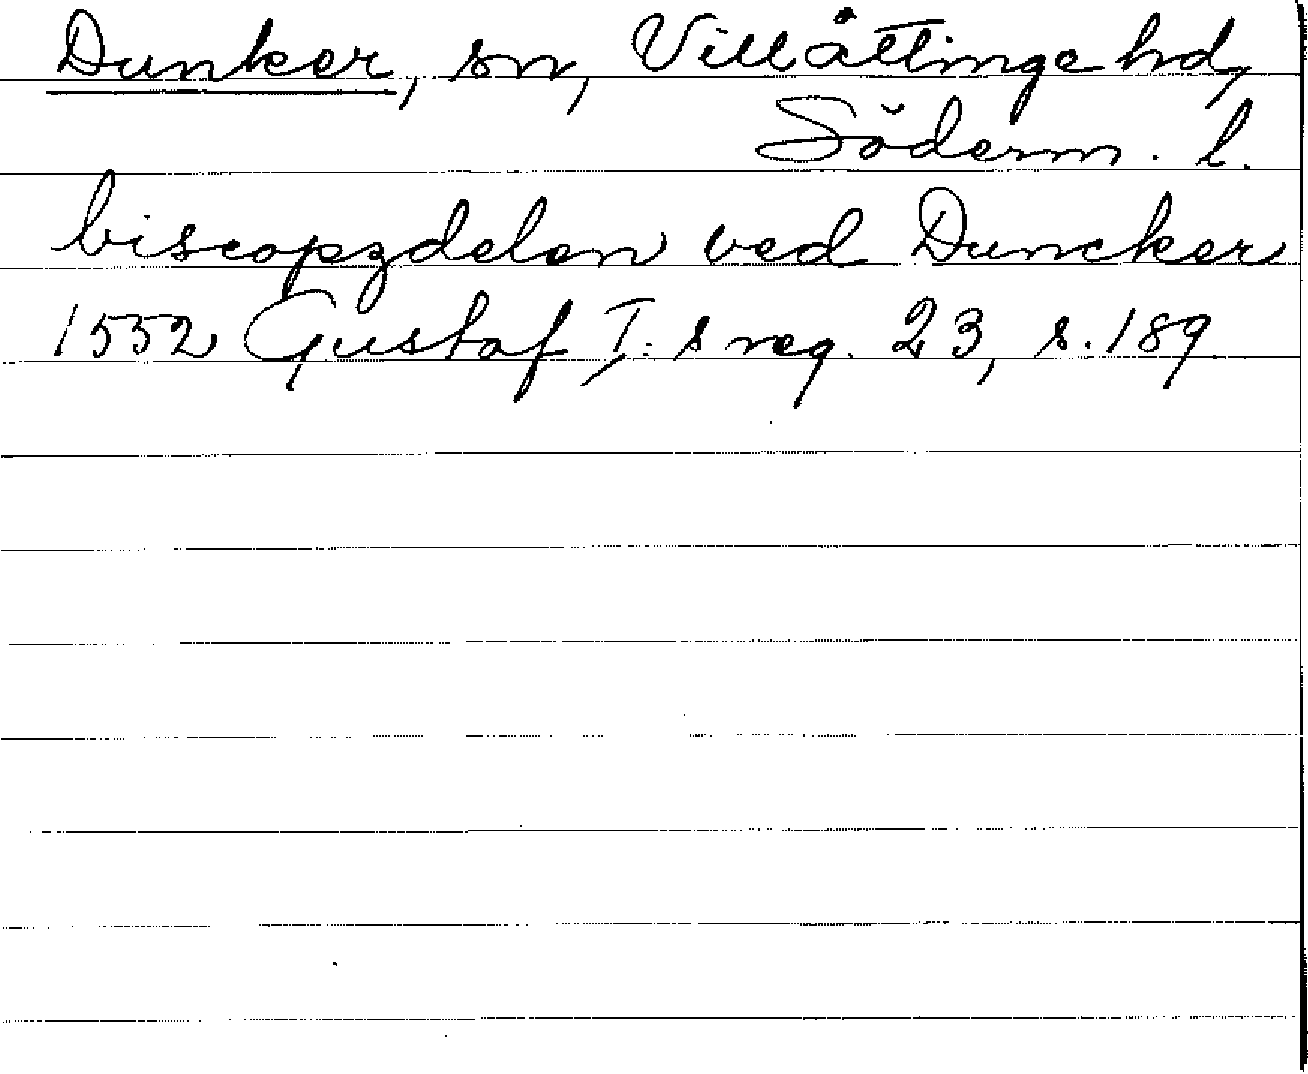 Dunker, sn, Villåttinge hd,
Söderm. l.
biscopzdelen ved Duncker
1552 Gustaf I:s reg. 23, s. 189